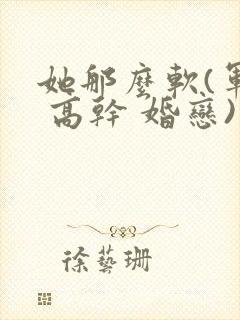 她那麼軟(軍
高幹 婚戀)
徐藝珊